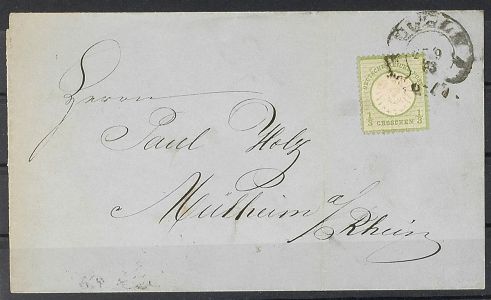 Herrn
Paul Holz
Mülheim a/Rhein
1/3 GROSCHEN 1/3